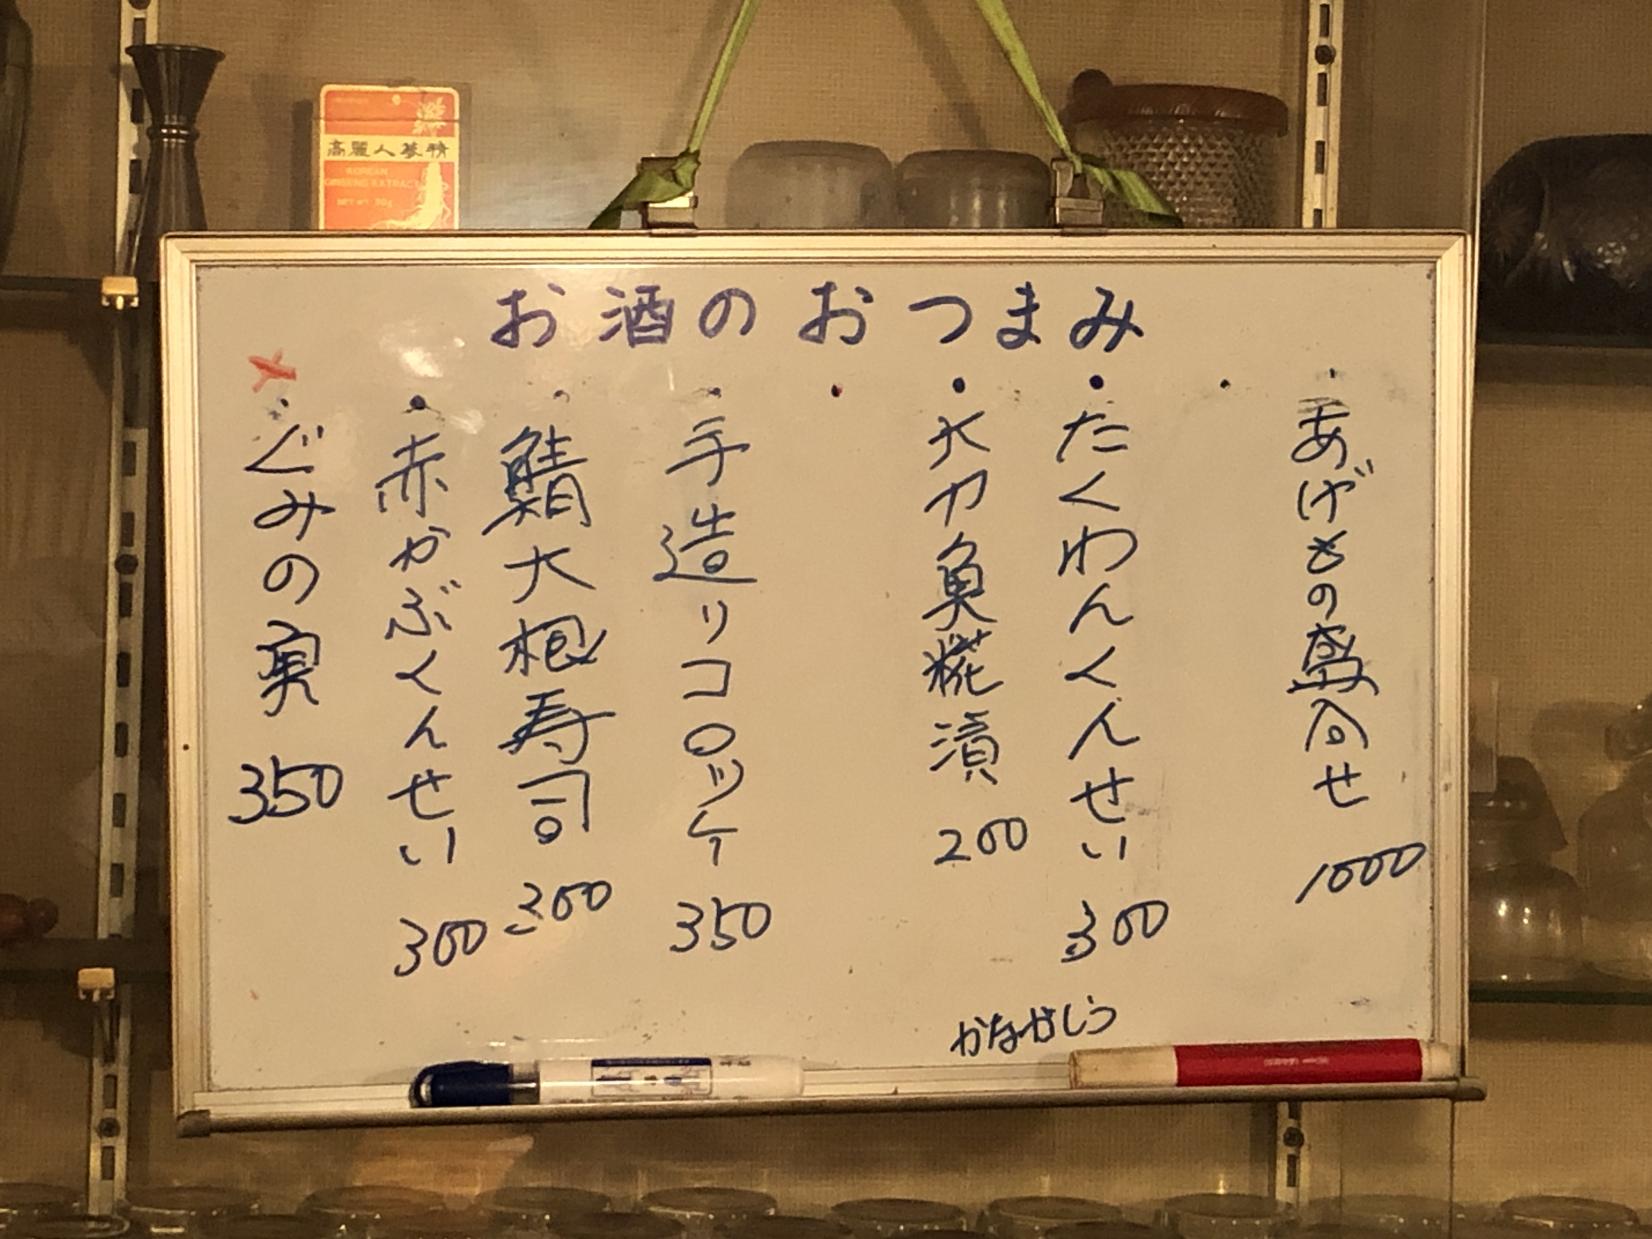 高麗人蔘精
KOREAN
GINSENG EXTRACT
NET WT 30g
お酒のおつまみ
・あげもの盛合せ 1000
・
・たくわんくんせい 300
・大力魚糀漬 200
・
・手造りコロッケ 350
・鯖大根寿司 300
・赤かぶくんせい 300
・ぐみの実 350